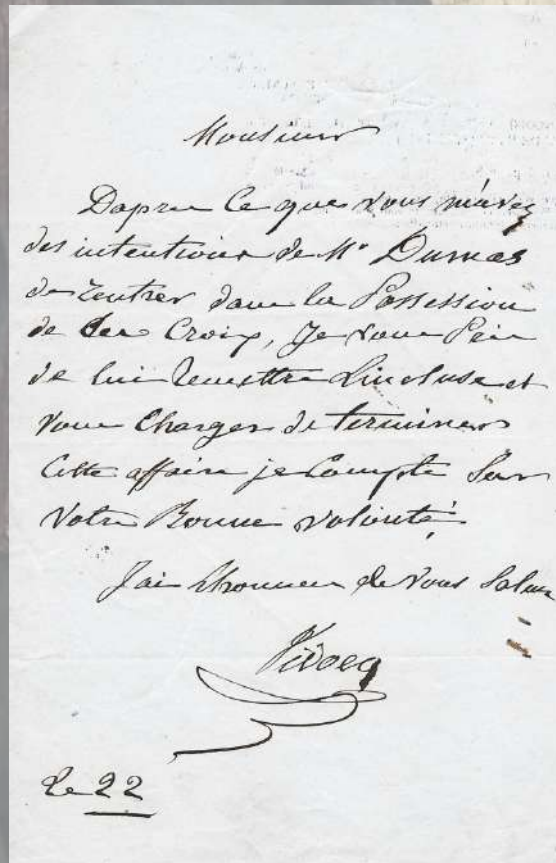 Monsieur
Dapres Ce que vous m'avez
des intentions de Mr Dumas
de Rentrer dans la Possession
de Ces Croix, Je vous Prie
de lui Remettre Lincluse et
vous Charger de terminer
Cette affaire je Compte Sur
Votre Bonne volonté
J'ai l'honneur de Vous Saluer
Vidocq
Le 22